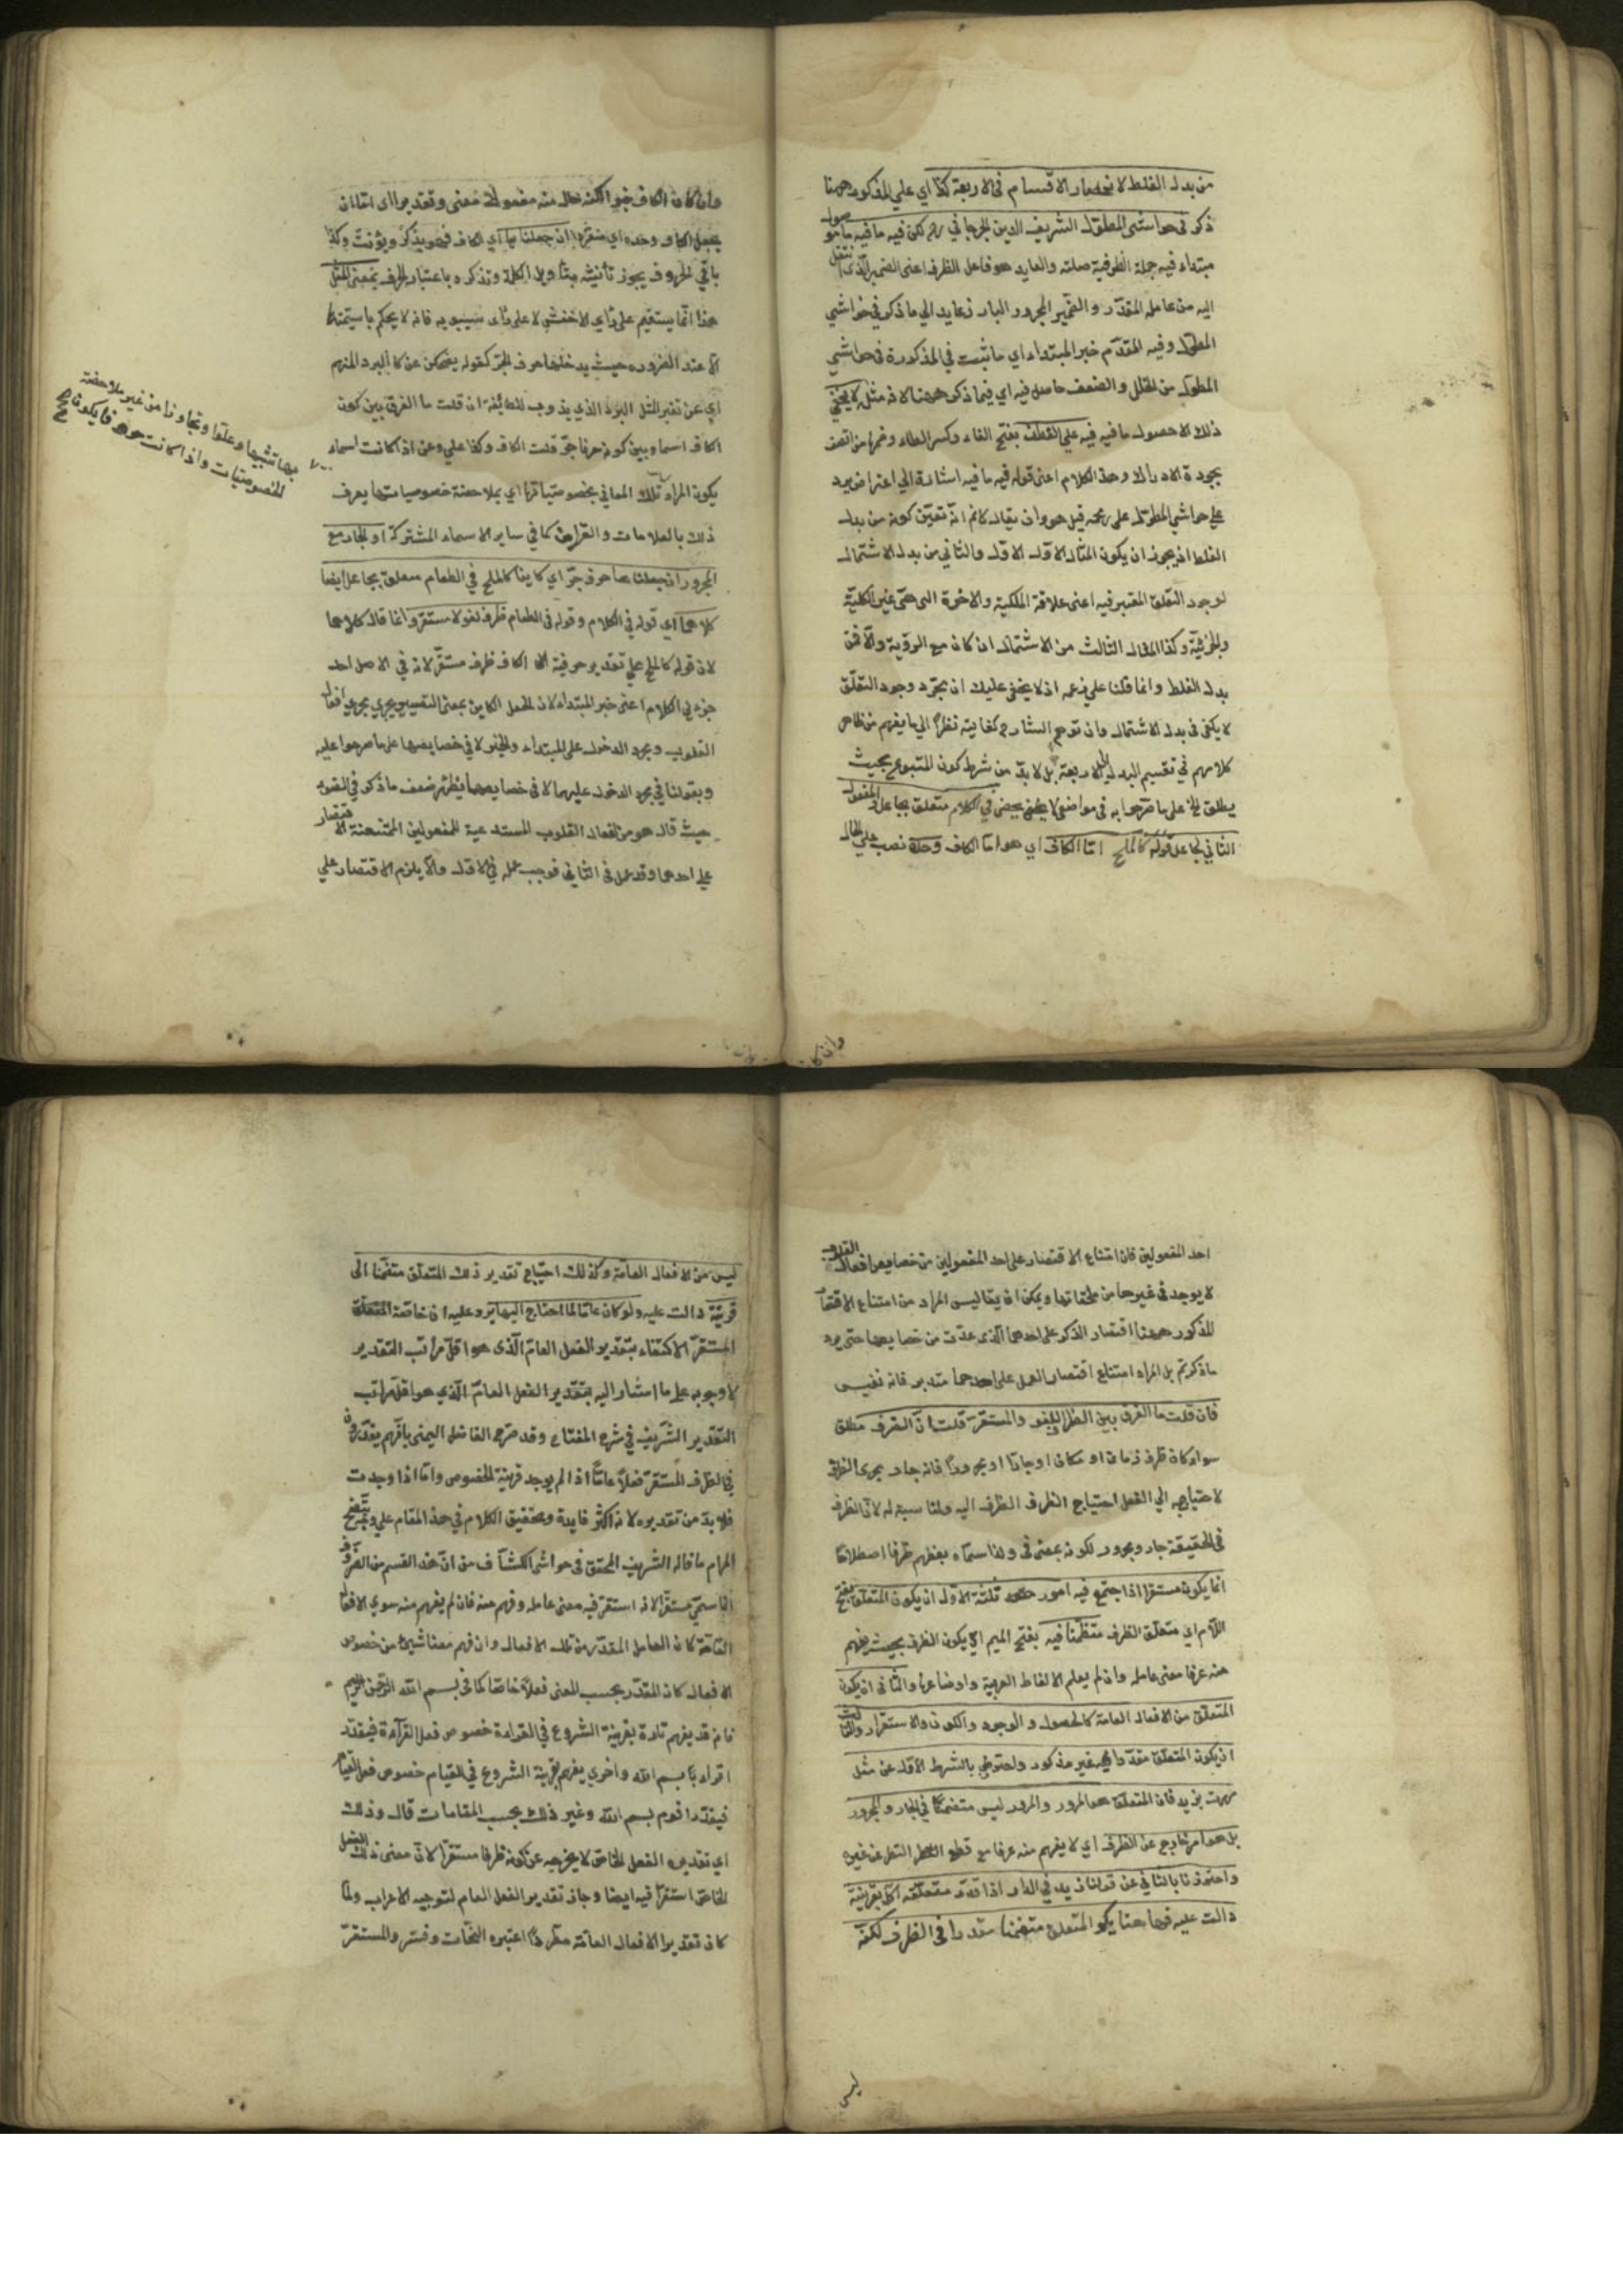 من بدل الغلط لانحصار الاقسام في الاربعة كذا اي علي المذكور ههنا
ذكر في حواشي المطول الشريف الدين الجرجاني لكن فيه ما فيه ما هو
مبتداء فيه جملة الظرفية صلته والعايد هو فاعل الظرف اعنى الضمير الذي انتقل
اليه من عامله المقدّر والضمير المجرور البارز عايد الي ما ذكر في حواشي
المطول وفيه المقدّم خبر المبتداء اي ما ثبت في المذكورة في حواشي
المطول من الخلل والضعف حاصل فيه اي فيما ذكر ههنا لانه مثله لا يخفي
ذلك الا حصول ما فيه فيه علي الفطن بفتح الفاء وكسر الطاء وضمها من اتصف
بجودة الادراك وهذا الكلام اعنى قوله فيه ما فيه اشارة الي اعتراض يرد
علي حواشي المطول على زعمه قيل هو ان يقال كانه انه تعيّن كونه من بدل
الغلط اذ يجوز ان يكون المثال الاول الاول والثاني من بدل الاشتمال
لوجود التعلق المعتبر فيه اعنى علاقة الملكية والاخوة التى هى غير الكلية
والجزئية وكذا المثال الثالث من الاشتمال ان كان مع الرؤية والا فمن
بدل الغلط وانما قلنا علي زعمه اذ لا يخفى عليك ان مجرّد وجود التعلّق
لا يكفى في بدل الاشتمال وان توهم الشارح كفايته نظرا الي ما يفهم من ظاهر
كلامهم في تقسيم البدل الي الاربعة بل لا بدّ من شرط كون المتبوع بحيث
يطلق على ما صرّحوا به في مواضع لا يخفى في الكلام متعلق بجاعل والمفعول
الثاني لجاعل قوله كالملح امّا الكاف اي هو اما الكاف وحده نصب علي الحال
وان كان الكاف خبرا لكنه حال منه مفعول له معنى وتقديرا اي اما ان
يجعل الكاف وحده اي منفردا ان جعلنا ها اي الكاف فهو يذكّر ويؤنث وكذا
باقي الحروف يجوز تأنيثه بتأويل الكلمة وتذكره باعتبار الحرف بمعنى المثل
هذا انّما يستقيم على رأي الاخفش لا على رأى سيبويه فانه لا يحكم باسميتها
الا عند الضرورة حيث يدخلها حرف الجرّ كقوله يضحكن عن كالبرد المنهم
اي عن ثغر المثل البرد الذي يذوب للطافته ان قلت ما الفرق بين كون
الكاف اسما وبين كونه حرفا جرّ قلت الكاف وكذا علي وعن اذا كانت اسماء
يكون المراد تلك المعاني بخصوصياتها اي بملاحظة خصوصياتها يعرف
ذلك بالعلامات والقراين كما في ساير الاسماء المشتركة او الجار مع
المجرور ان جعلناها حرف جرّ اي كاينا كالملح في الطعام متعلق بجاعل ايضا
كلاهما اي قوله في الكلام وقوله في الطعام ظرف لغو لا مستقر وانما قال كلاهما
لان قوله كالملح علي تقدير حرفية الكاف ظرف مستقرّ لانه في الاصل احد
جزءي الكلام اعنى خبر المبتداء لان الجعل الكاين بمعنى التصيير يجري مجرى افعال
القلوب ومجرد الدخول على المبتداء والخبر لا في خصايصها على ما صرحوا عليه
وبقولنا في مجرد الدخول عليهما لا في خصايصها يظهر ضعف ما ذكر في الضوء
حيث قال هو من افعال القلوب المستدعية للمفعولين الممتنعة الاقتصار
علي احدهما وقد عمل في الثاني فوجب عمله في الاول والا يلزم الاقتصار علي
بها تشبيها وعلوّا وتجاوزا من غير ملاحظة
الخصوصيات واذا كانت حروفا يكون
صح
وان كا
احد المفعولين فان امتناع الاقتصار على احد المفعولين من خصايص افعال القلوب
لا يوجد في غيرها من ملحقاتها ويمكن ان يقال ليس المراد من امتناع الاقتصار
المذكور ههنا اقتصار الذكر على احدهما الذى عدّت من خصايصها حتى يرد
ما ذكرتم بل المراد امتناع اقتصار العمل على احدهما متدبر فانه نفيس
فان قلت ما الفرق بين الظرف اللغو والمستقرّ قلت انّ الظرف مطلق
سواء كان ظرف زمان او مكان او جارّا او مجرورا فانه جار مجرى الظرف
لاحتياجه الي الفعل احتياج الظرف الظرف اليه ولمناسبته له لانّ الظرف
في الحقيقة جار ومجرور لكونه بمعنى في ولذا سمّاه بعضهم ظرفا اصطلاحا
انما يكون مستقرا اذا اجتمع فيه امور ثلثة الاول ان يكون المتعلّق بفتح
اللام اى متعلّق الظرف متضمّنا فيه بفتح الميم اى يكون الظرف بحيث يفهم
منه عرفا معنى عامله وان لم يعلم الالفاظ العربية واوضاعها والثانى ان يكون
المتعلّق من الافعال العامة كالحصول والوجود والكون والاستقرار والثالث
ان يكون المتعلق مقدّرا غير مذكور واحترز بالشرط الاول عن مثل
مررت بزيد فان المتعلق هو المرور والمرور ليس متضمنا في الجار والمجرور
بل هو امر خارج عن الظرف اي لا يفهم منه عرفا مع قطع النظر عن غيره
واحترزنا بالثانى عن قولنا زيد في الدار اذا قدّر متعلقه اكل بقرينة
دالت عليه فههنا يكون المتعلق متضمّنا مقدرا في الظرف لكنّه
ليس
ليس من الافعال العامة وكذلك احتياج تقدير ذلك المتعلق متضمّنا الى
قرينة دالت عليه ولو كان عامّا لما احتاج اليها يرد عليه ان خاصّة المتعلّق
المستقرّ الاكتفاء بتقدير الفعل العامّ الّذى هو اقلّ مراتب التقدير
لا وجوبه علي ما اشار اليه بتقدير الفعل العامّ الّذي هو اقلّ مراتب
التقدير الشريف في شرح المفتاح وقد صرّح الفاضل اليمنى بانّهم يقدّرون
في الظرف المستقرّ فعلا عامّا اذا لم يوجد قرينة الخصوص وامّا اذا وجدت
فلا بدّ من تقديره لانه اكثر فايدة وتحقيق الكلام في هذا المقام علي وجه يتّضح
المرام ما قاله الشريف المحقق في حواشى الكشّاف من انّ هذا القسم من الظرف
انّما سمّي مستقرّا لانه استقرّ فيه معنى عامله وفهم منه فان لم يفهم منه سوي الافعال
العامّة كان العامل المقدّر من تلك الافعال وان فهم معنا شيئ من خصوص
الافعال كان المقدّر بحسب المعنى فعلا خاصّا كما في بسم الله الرّحمن الرحيم
فانه قد يفهم تارة بقرينة الشروع في القراءة خصوص فعل القراءة فيقدّر
اقراء بسم الله واخري يفهم بقرينة الشروع في القيام خصوص فعل القيام
فيقدّر اقوم بسم الله وغير ذلك بحسب المقامات قال وذلك
اي تقديره الفعل الخاصّ لا يخرجه عن كونه ظرفا مستقرّا لانّ معنى ذلك الفعل
الخاصّ استقرّ فيه ايضا وجاز تقدير الفعل العام لتوجيه الاعراب ولمّا
كان تقدير الافعال العامّة مطّردا اعتبره النحات وفسّر والمستقرّ